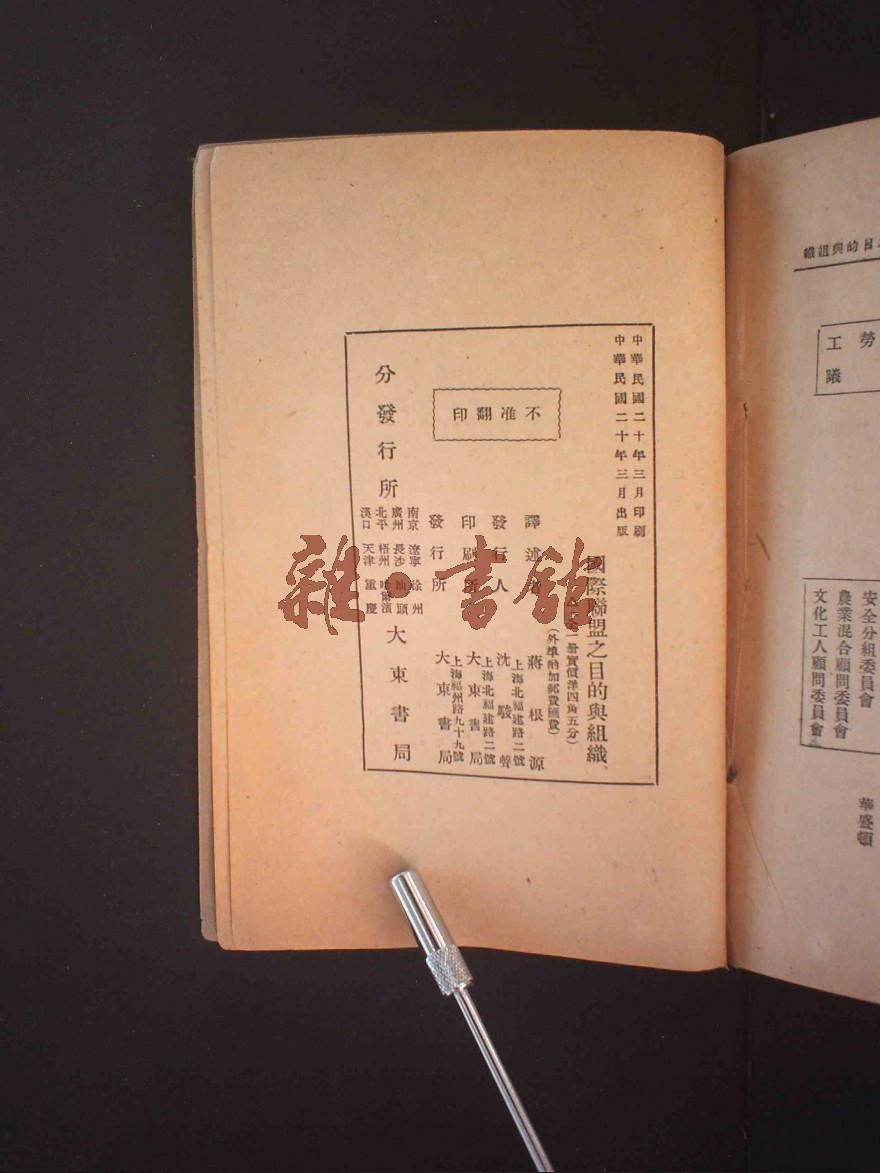 中華民國二十年三月印刷
中華民國二十年三月出版
國際聯盟之目的與組織
一册實價洋四角五分)
(外埠酌加郵費匯費)
譯述者 蔣根源
發行人 沈駿聲
上海北福建路二號
印刷所 大東書局
上海北福建路二號
發行所 大東書局
上海福州路九十九號
不准翻印
分發行所
南京 遼寧 徐州
廣州 長沙 汕頭
北平 梧州 哈爾濱
漢口 天津 重慶
大東書局
目的與組織
勞
工
議
安全分組委員會
農業混合顧問委員會
文化工人顧問委員會
華盛頓
雜·書館